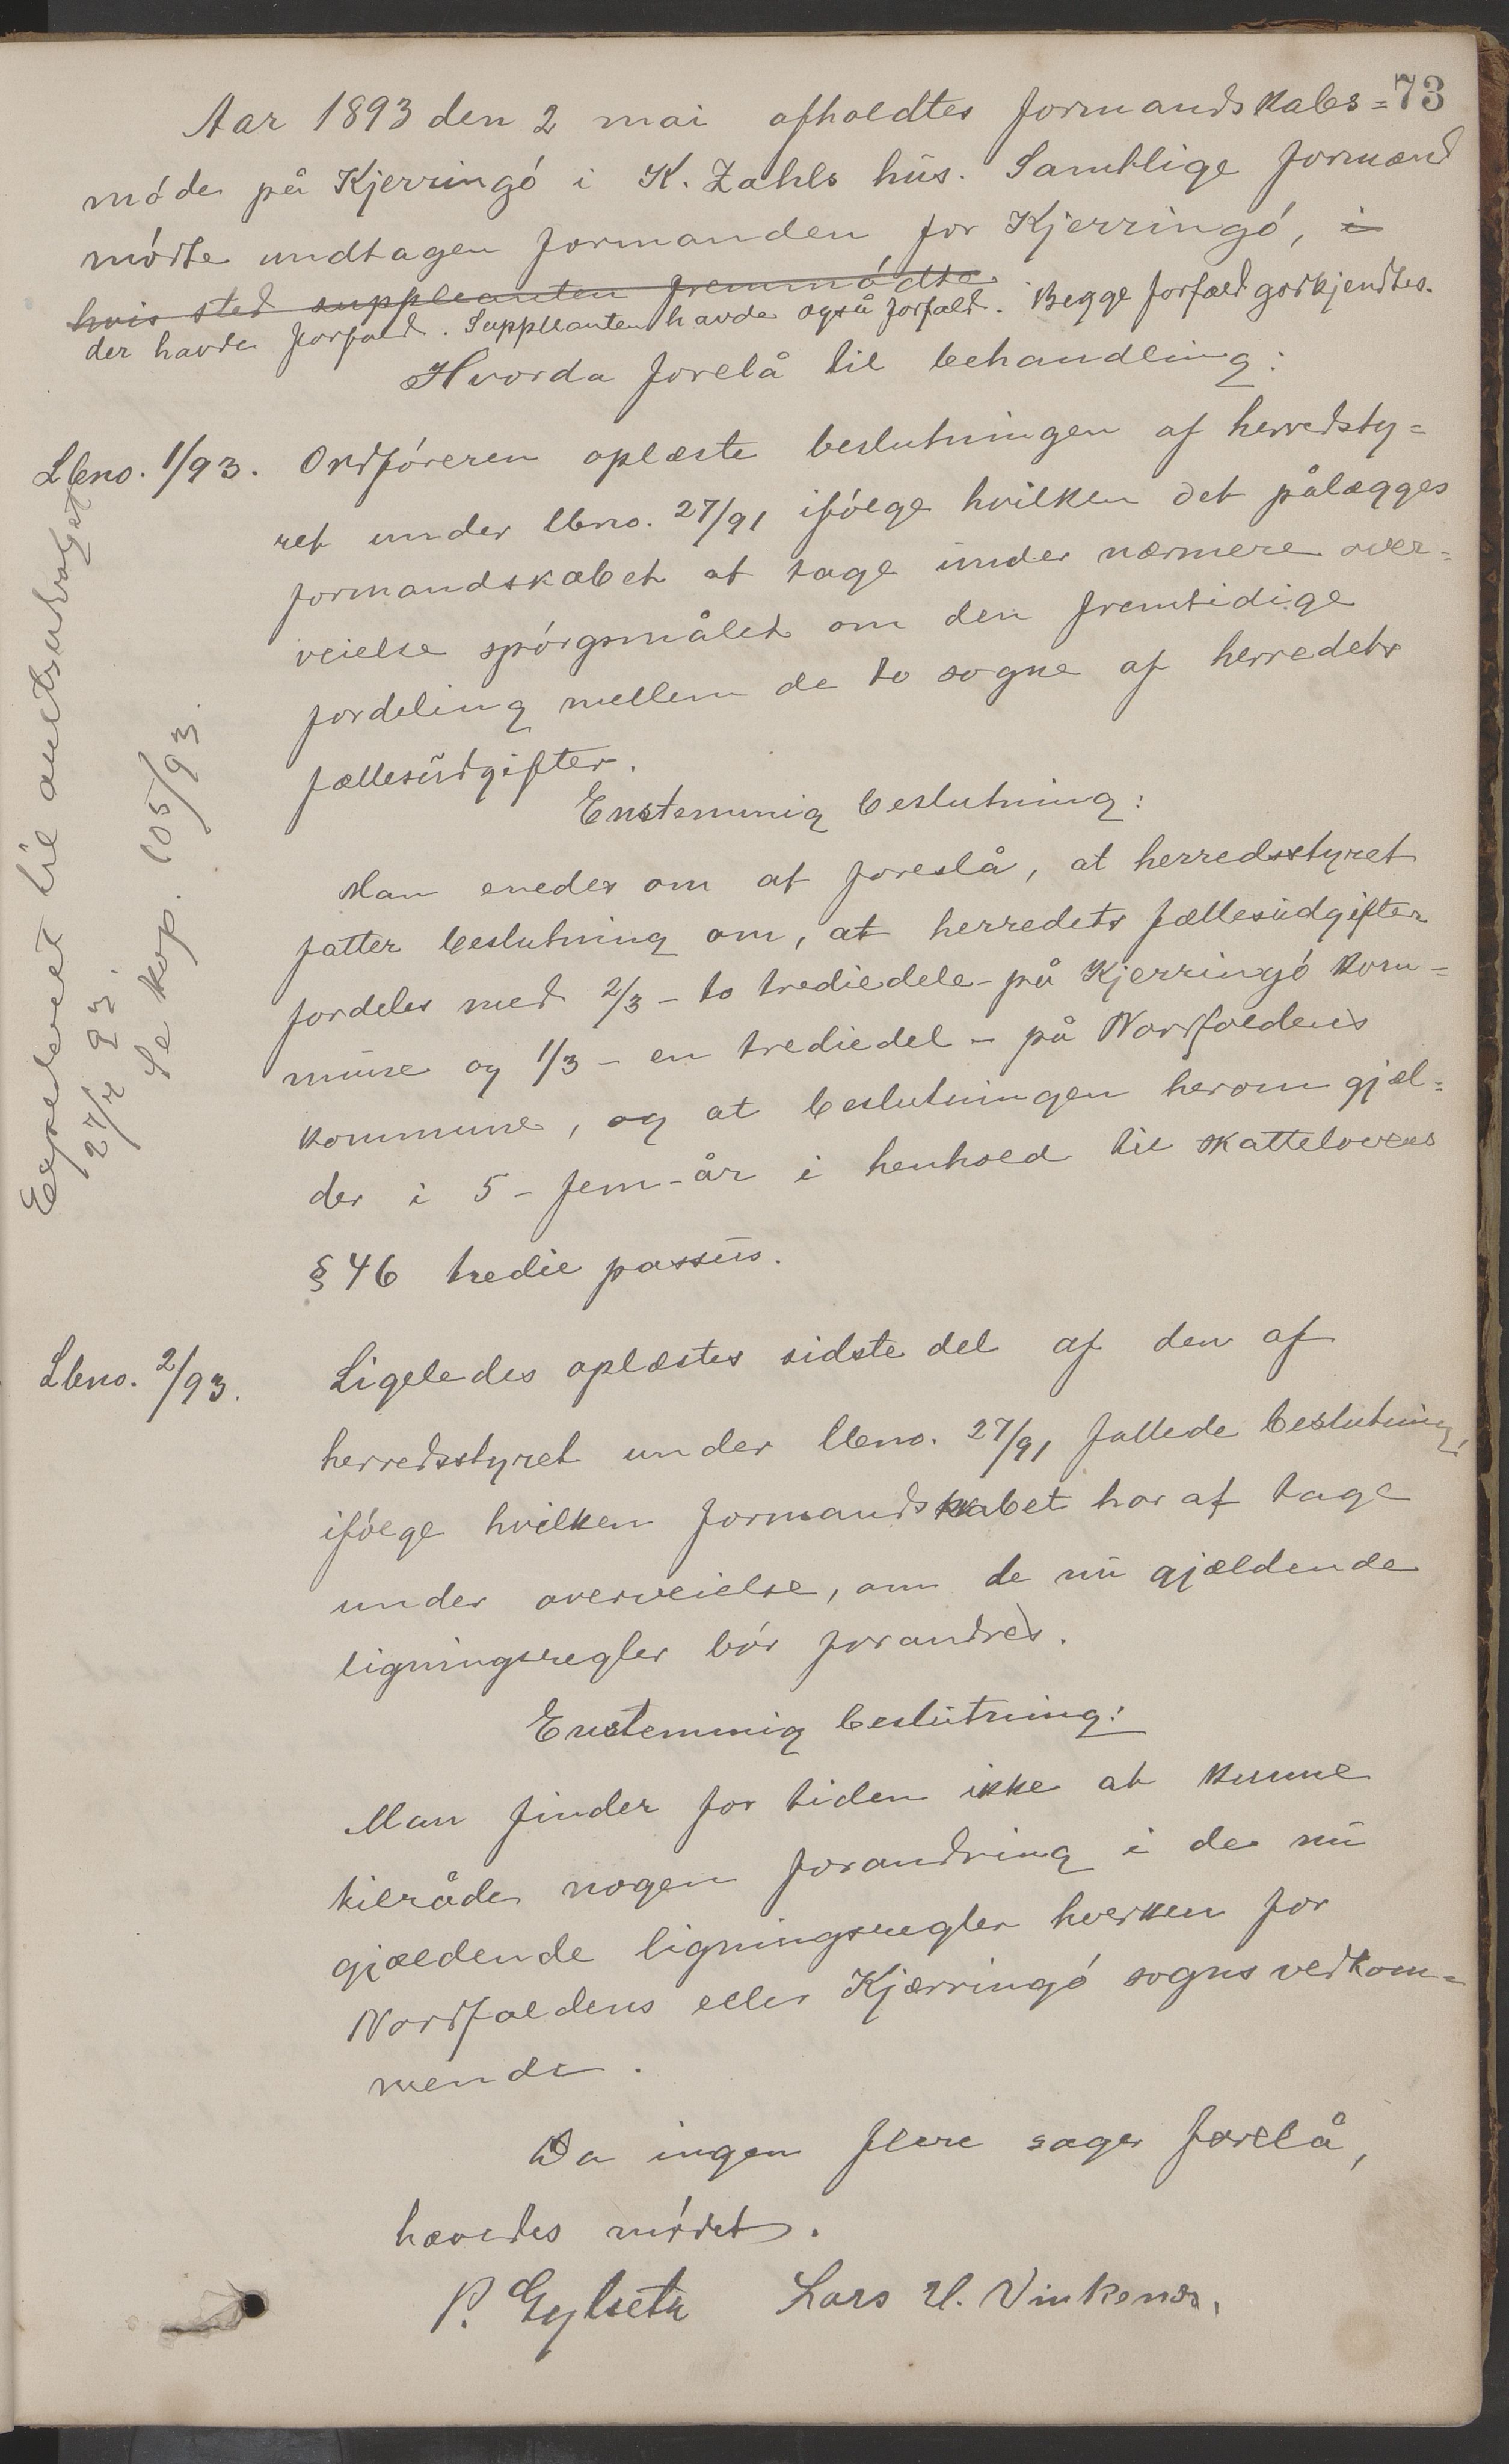 73
Aar 1893 den 2 mai afholdtes formandskabs=
møde på Kjerringó i K. Zahls hus. Samtlige formænd
mødte undtagen formanden for Kjerringó, i
hvis sted suppleanten fremmødte.
der havde forfald. Suppleanten havde også forfald. Begge forfald godkjendtes.
Hvorda forelå til behandling:
Lbno. 1/93. Ordføreren oplæste beslutningen af herredsty=
ret under lbno. 27/91 ifølge hvilken det pålægges
formandskabet at tage under nærmere over=
veielse spørgsmålet om den fremtidige
fordeling mellem de to sogne af herredets
fællesudgifter.
Enstemmig beslutning:
Man enedes om at foreslå, at herredsstyret
fatter beslutning om, at herredets fællesudgifter
fordeles med 2/3 - to trediedele - på Kjerringó kom=
mune og 1/3 - en trediedel - på Nordfoldens
kommune, og at beslutningen herom gjæl=
der i 5 - fem - år i henhold til skattelovens
§ 46 tredie passus.
Expederet til amtsudvalget
27/7 93.
Se kop. 105/93.
Lbno. 2/93. Ligeledes oplæstes sidste del af den af
herredsstyret under lbno. 27/91 fattede beslutning,
ifølge hvilken formandskabet har at tage
under overveielse, om de nu gjældende
ligningsregler bór forandres.
Enstemmig beslutning:
Man finder for tiden ikke at kunne
tilråde nogen forandring i de nu
gjældende ligningsregler hverken for
Nordfoldens eller Kjærringó sogns vedkom=
mende.
Da ingen flere sager forelå,
hævedes mødet.
P. Gylseth Lars U. Vinkenes.